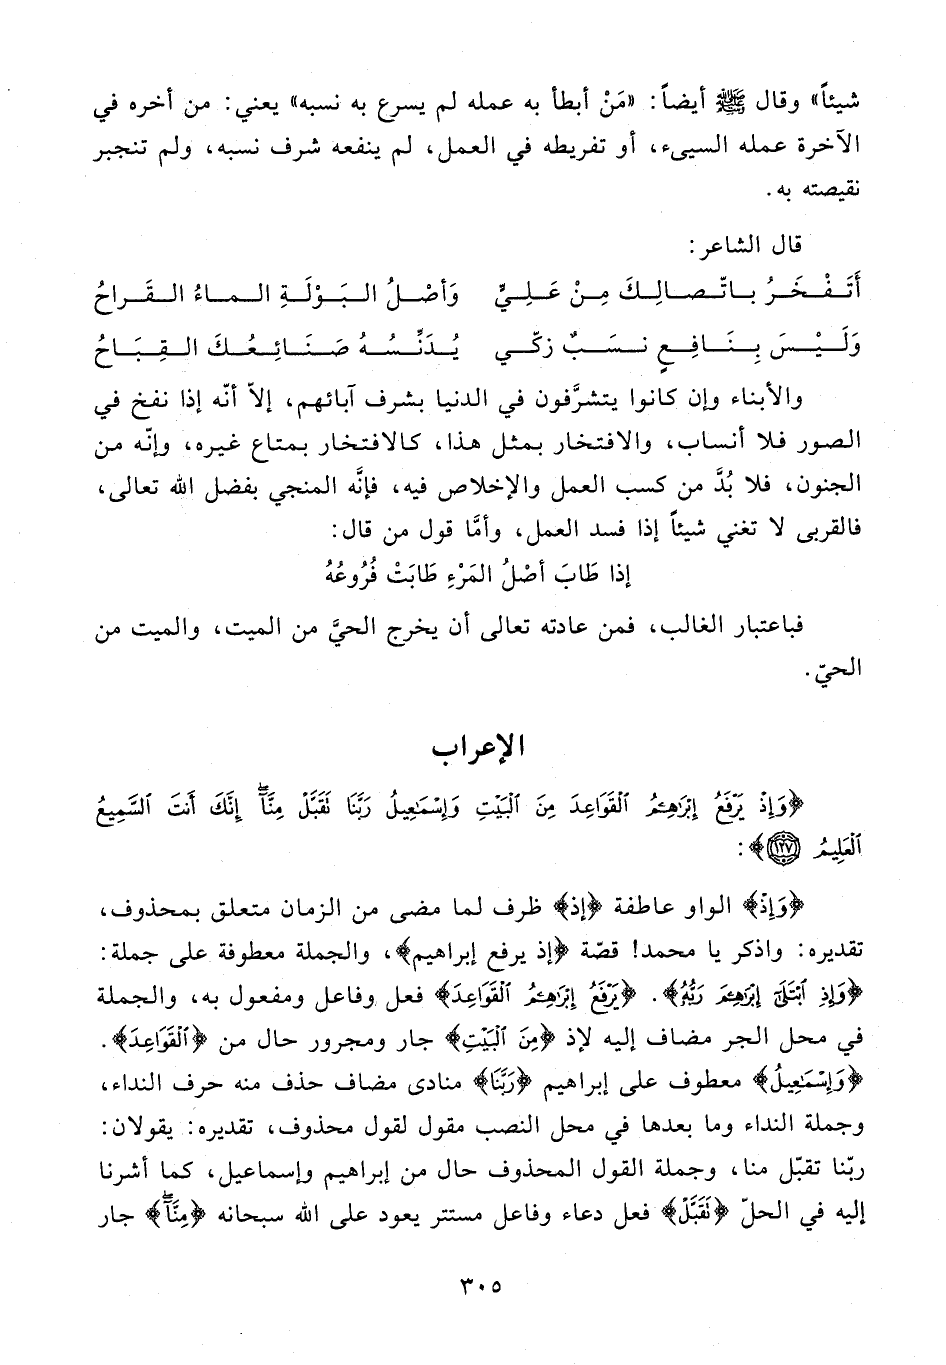 شيئاً» وقال ﷺ أيضاً: «مَنْ أبطأ به عمله لم يسرع به نسبه» يعني: من أخره في
الآخرة عمله السيىء، أو تفريطه في العمل، لم ينفعه شرف نسبه، ولم تنجبر
نقيصته به.
قال الشاعر:
أَتَفْخَرُ بِاتّصَالِكَ مِنْ عَلِيٍّ وَأصْلُ البَوْلَةِ المَاءُ القَرَاحُ
وَلَيْسَ بِنَافِعٍ نَسَبٌ زكّي يُدَنِّسُهُ صَنَائِعُكَ القِبَاحُ
والأبناء وإن كانوا يتشرَّفون في الدنيا بشرف آبائهم، إلاّ أنّه إذا نفخ في
الصور فلا أنساب، والافتخار بمثل هذا، كالافتخار بمتاع غيره، وإنّه من
الجنون، فلا بُدَّ من كسب العمل والإخلاص فيه، فإنَّه المنجي بفضل الله تعالى،
فالقربى لا تغني شيئاً إذا فسد العمل، وأمَّا قول من قال:
إذا طَابَ أصْلُ المَرْءِ طَابَتْ فُرُوعُهُ
فباعتبار الغالب، فمن عادته تعالى أن يخرج الحيَّ من الميت، والميت من
الحيّ.
الإعراب
﴿وَإِذْ يَرْفَعُ إِبْرَٰهِـۧمُ ٱلْقَوَاعِدَ مِنَ ٱلْبَيْتِ وَإِسْمَـٰعِيلُ رَبَّنَا تَقَبَّلْ مِنَّآ ۖ إِنَّكَ أَنتَ ٱلسَّمِيعُ
ٱلْعَلِيمُ ١٢٧﴾:
﴿وَإِذْ﴾ الواو عاطفة ﴿إذ﴾ ظرف لما مضى من الزمان متعلق بمحذوف،
تقديره: واذكر يا محمد! قصّة ﴿إذ يرفع إبراهيم﴾، والجملة معطوفة على جملة:
﴿وَإِذِ ٱبْتَلَىٰٓ إِبْرَٰهِـۧمَ رَبُّهُۥ﴾. ﴿يَرْفَعُ إِبْرَٰهِـۧمُ ٱلْقَوَاعِدَ﴾ فعل وفاعل ومفعول به، والجملة
في محل الجر مضاف إليه لإذ ﴿مِنَ ٱلْبَيْتِ﴾ جار ومجرور حال من ﴿ٱلْقَوَاعِدَ﴾.
﴿وَإِسْمَـٰعِيلُ﴾ معطوف على إبراهيم ﴿رَبَّنَا﴾ منادى مضاف حذف منه حرف النداء،
وجملة النداء وما بعدها في محل النصب مقول لقول محذوف، تقديره: يقولان:
ربّنا تقبّل منا، وجملة القول المحذوف حال من إبراهيم وإسماعيل، كما أشرنا
إليه في الحلّ ﴿تَقَبَّلْ﴾ فعل دعاء وفاعل مستتر يعود على الله سبحانه ﴿مِنَّآ ۖ﴾ جار
٣٠٥